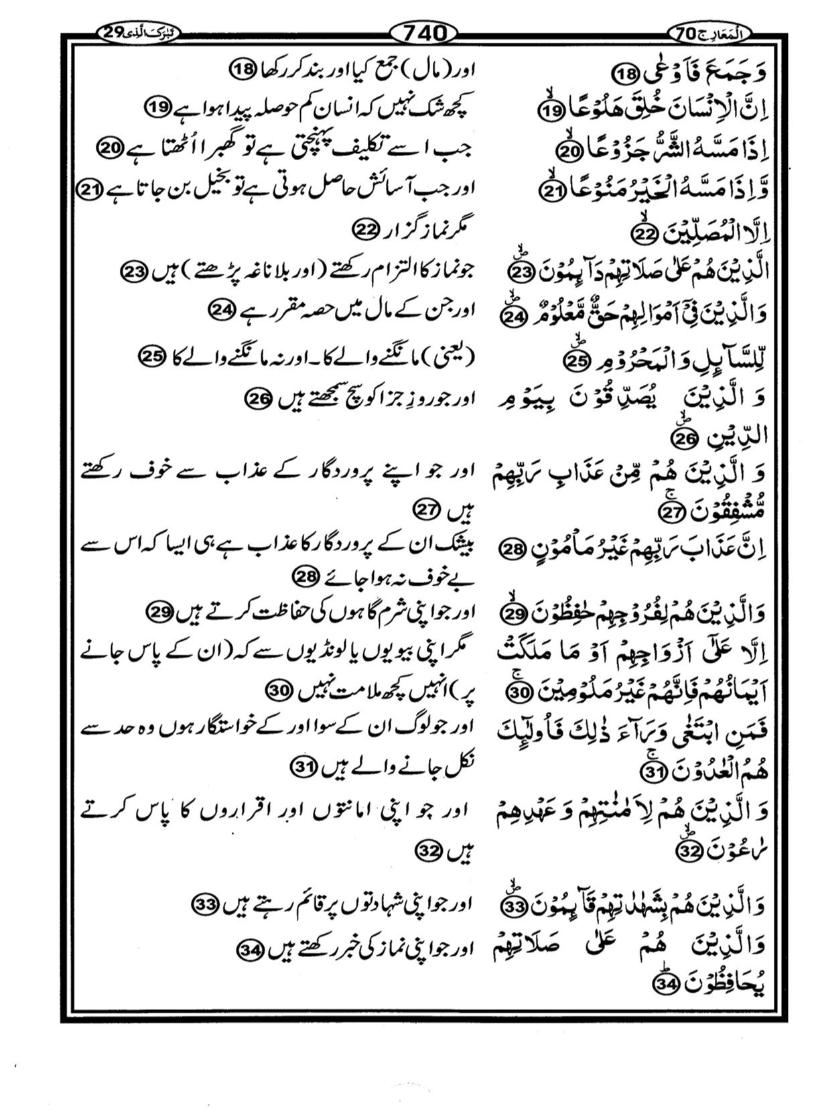 اَلْمَعَارِج 70
740
تَبٰرَکَ الَّذِی 29
وَ جَمَعَ فَاَوْعٰی ⑱
اور (مال) جمع کیا اور بند کر رکھا ⑱
اِنَّ الْاِنْسَانَ خُلِقَ هَلُوْعًا ۙ⑲
کچھ شک نہیں کہ انسان کم حوصلہ پیدا ہوا ہے ⑲
اِذَا مَسَّهُ الشَّرُّ جَزُوْعًا ۙ⑳
جب اسے تکلیف پہنچتی ہے تو گھبرا اُٹھتا ہے ⑳
وَّ اِذَا مَسَّهُ الْخَیْرُ مَنُوْعًا ۙ㉑
اور جب آسائش حاصل ہوتی ہے تو بخیل بن جاتا ہے ㉑
اِلَّا الْمُصَلِّیْنَ ۙ㉒
مگر نماز گزار ㉒
الَّذِیْنَ هُمْ عَلٰی صَلَاتِهِمْ دَآىِٕمُوْنَ ۪ۙ㉓
جو نماز کا التزام رکھتے (اور بلا ناغہ پڑھتے) ہیں ㉓
وَ الَّذِیْنَ فِیْۤ اَمْوَالِهِمْ حَقٌّ مَّعْلُوْمٌ ۪ۙ㉔
اور جن کے مال میں حصہ مقرر ہے ㉔
لِّلسَّآىِٕلِ وَ الْمَحْرُوْمِ ۪ۙ㉕
(یعنی) مانگنے والے کا۔ اور نہ مانگنے والے کا ㉕
وَ الَّذِیْنَ یُصَدِّقُوْنَ بِیَوْمِ
اور جو روزِ جزا کو سچ سمجھتے ہیں ㉖
الدِّیْنِ ۪ۙ㉖
وَ الَّذِیْنَ هُمْ مِّنْ عَذَابِ رَبِّهِمْ
اور جو اپنے پروردگار کے عذاب سے خوف رکھتے
مُّشْفِقُوْنَ ۚ㉗
ہیں ㉗
اِنَّ عَذَابَ رَبِّهِمْ غَیْرُ مَاْمُوْنٍ ㉘
بیشک ان کے پروردگار کا عذاب ہے ہی ایسا کہ اس سے
بے خوف نہ ہوا جائے ㉘
وَ الَّذِیْنَ هُمْ لِفُرُوْجِهِمْ حٰفِظُوْنَ ۙ㉙
اور جو اپنی شرم گاہوں کی حفاظت کرتے ہیں ㉙
اِلَّا عَلٰۤی اَزْوَاجِهِمْ اَوْ مَا مَلَكَتْ
مگر اپنی بیویوں یا لونڈیوں سے کہ (ان کے پاس جانے
اَیْمَانُهُمْ فَاِنَّهُمْ غَیْرُ مَلُوْمِیْنَ ۚ㉚
پر) انہیں کچھ ملامت نہیں ㉚
فَمَنِ ابْتَغٰی وَرَآءَ ذٰلِكَ فَاُولٰٓىِٕكَ
اور جو لوگ ان کے سوا اور کے خواستگار ہوں وہ حد سے
هُمُ الْعٰدُوْنَ ۚ㉛
نکل جانے والے ہیں ㉛
وَ الَّذِیْنَ هُمْ لِاَمٰنٰتِهِمْ وَ عَهْدِهِمْ
اور جو اپنی امانتوں اور اقراروں کا پاس کرتے
رٰعُوْنَ ۪ۙ㉜
ہیں ㉜
وَ الَّذِیْنَ هُمْ بِشَهٰدٰتِهِمْ قَآىِٕمُوْنَ ۪ۙ㉝
اور جو اپنی شہادتوں پر قائم رہتے ہیں ㉝
وَ الَّذِیْنَ هُمْ عَلٰی صَلَاتِهِمْ
اور جو اپنی نماز کی خبر رکھتے ہیں ㉞
یُحَافِظُوْنَ ؕ㉞